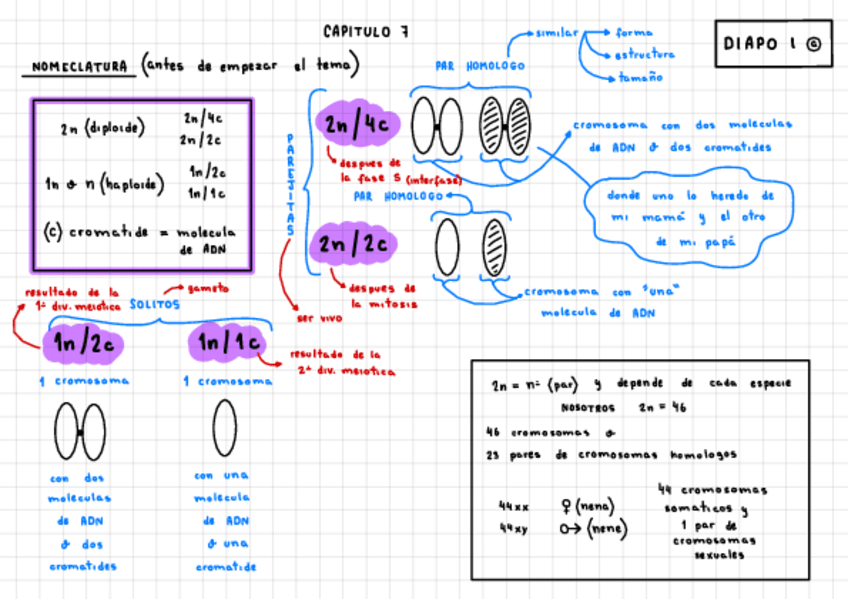 CAPITULO 7
DIAPO 1 @
NOMECLATURA (antes de empezar el tema)
2n (diploide)
2n/4c
2n/2c
1n ó n (haploide)
1n/2c
1n/1c
(c) cromatide = molecula
de ADN
PAREJITAS
2n/4c
despues de
la fase S (interfase)
PAR HOMOLOGO
similar
forma
estructura
tamaño
cromosoma con dos moleculas
de ADN ó dos cromatides
donde uno lo heredo de
mi mamá y el otro
de mi papá
PAR HOMOLOGO
2n/2c
despues de
la mitosis
ser vivo
cromosoma con "una"
molecula de ADN
resultado de la
1ª div. meiotica
SOLITOS
gameto
1n/2c
1 cromosoma
con dos
moleculas
de ADN
ó dos
cromatides
1n/1c
resultado de la
2ª div. meiotica
1 cromosoma
con una
molecula
de ADN
ó una
cromatide
2n = nº (par) y depende de cada especie
NOSOTROS 2n = 46
46 cromosomas ó
23 pares de cromosomas homologos
44xx ♀ (nena)
44xy ♂ (nene)
44 cromosomas
somaticos y
1 par de
cromosomas
sexuales